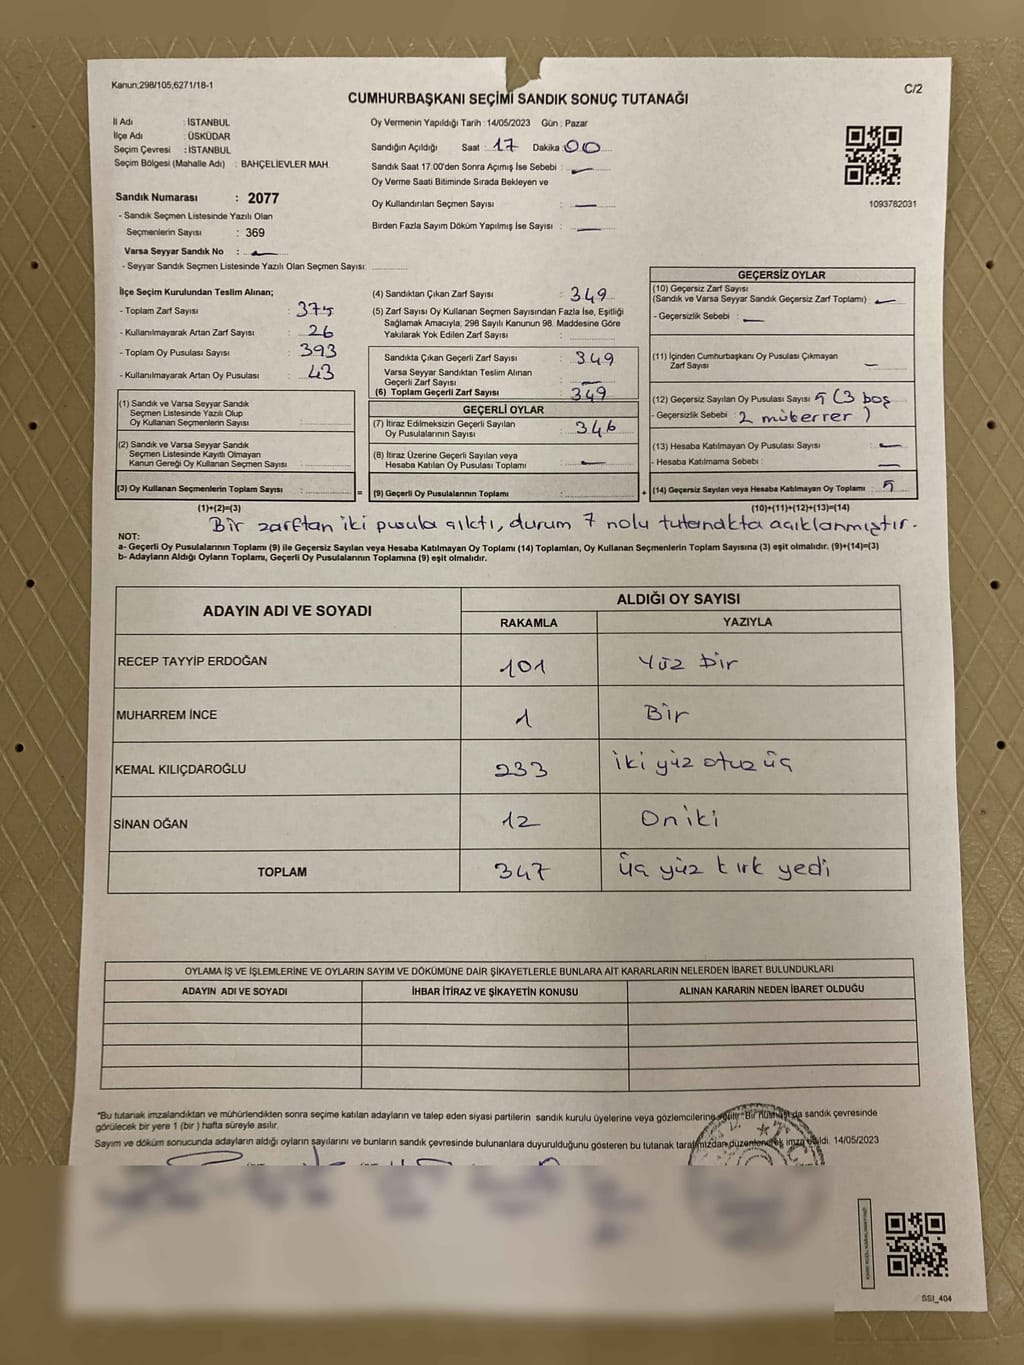 Kanun;298/105;6271/18-1
C/2
CUMHURBAŞKANI SEÇİMİ SANDIK SONUÇ TUTANAĞI
İl Adı : İSTANBUL
İlçe Adı : ÜSKÜDAR
Seçim Çevresi : İSTANBUL
Seçim Bölgesi (Mahalle Adı) : BAHÇELİEVLER MAH.
Sandık Numarası : 2077
- Sandık Seçmen Listesinde Yazılı Olan
Seçmenlerin Sayısı : 369
Varsa Seyyar Sandık No :
- Seyyar Sandık Seçmen Listesinde Yazılı Olan Seçmen Sayısı:
Oy Vermenin Yapıldığı Tarih : 14/05/2023 Gün : Pazar
Sandığın Açıldığı Saat : 17 Dakika : 00
Sandık Saat 17.00'den Sonra Açımış İse Sebebi :
Oy Verme Saati Bitiminde Sırada Bekleyen ve
Oy Kullandırılan Seçmen Sayısı :
Birden Fazla Sayım Döküm Yapılmış İse Sayısı :
1093782031
İlçe Seçim Kurulundan Teslim Alınan;
- Toplam Zarf Sayısı : 375
- Kullanılmayarak Artan Zarf Sayısı : 26
- Toplam Oy Pusulası Sayısı : 393
- Kullanılmayarak Artan Oy Pusulası : 43
(1) Sandık ve Varsa Seyyar Sandık
Seçmen Listesinde Yazılı Olup
Oy Kullanan Seçmenlerin Sayısı :
(2) Sandık ve Varsa Seyyar Sandık
Seçmen Listesinde Kayıtlı Olmayan
Kanun Gereği Oy Kullanan Seçmen Sayısı :
(3) Oy Kullanan Seçmenlerin Toplam Sayısı :
(1)+(2)=(3)
(4) Sandıktan Çıkan Zarf Sayısı : 349
(5) Zarf Sayısı Oy Kullanan Seçmen Sayısından Fazla İse, Eşitliği
Sağlamak Amacıyla; 298 Sayılı Kanunun 98. Maddesine Göre
Yakılarak Yok Edilen Zarf Sayısı :
Sandıkta Çıkan Geçerli Zarf Sayısı : 349
Varsa Seyyar Sandıktan Teslim Alınan
Geçerli Zarf Sayısı :
(6) Toplam Geçerli Zarf Sayısı : 349
GEÇERLİ OYLAR
(7) İtiraz Edilmeksizin Geçerli Sayılan
Oy Pusulalarının Sayısı : 346
(8) İtiraz Üzerine Geçerli Sayılan veya
Hesaba Katılan Oy Pusulası Toplamı :
= (9) Geçerli Oy Pusulalarının Toplamı :
GEÇERSİZ OYLAR
(10) Geçersiz Zarf Sayısı
(Sandık ve Varsa Seyyar Sandık Geçersiz Zarf Toplamı) :
- Geçersizlik Sebebi :
(11) İçinden Cumhurbaşkanı Oy Pusulası Çıkmayan
Zarf Sayısı :
(12) Geçersiz Sayılan Oy Pusulası Sayısı : 5 (3 boş
- Geçersizlik Sebebi : 2 müberrer )
(13) Hesaba Katılmayan Oy Pusulası Sayısı :
- Hesaba Katılmama Sebebi :
+ (14) Geçersiz Sayılan veya Hesaba Katılmayan Oy Toplamı : 5
(10)+(11)+(12)+(13)=(14)
Bir zarftan iki pusula çıktı, durum 7 nolu tutanakta açıklanmıştır.
NOT:
a- Geçerli Oy Pusulalarının Toplamı (9) ile Geçersiz Sayılan veya Hesaba Katılmayan Oy Toplamı (14) Toplamları, Oy Kullanan Seçmenlerin Toplam Sayısına (3) eşit olmalıdır. (9)+(14)=(3)
b- Adayların Aldığı Oyların Toplamı, Geçerli Oy Pusulalarının Toplamına (9) eşit olmalıdır.
ADAYIN ADI VE SOYADI
ALDIĞI OY SAYISI
RAKAMLA YAZIYLA
RECEP TAYYİP ERDOĞAN 101 Yüz bir
MUHARREM İNCE 1 Bir
KEMAL KILIÇDAROĞLU 233 iki yüz otuz üç
SİNAN OĞAN 12 On iki
TOPLAM 347 üç yüz kırk yedi
OYLAMA İŞ VE İŞLEMLERİNE VE OYLARIN SAYIM VE DÖKÜMÜNE DAİR ŞİKAYETLERLE BUNLARA AİT KARARLARIN NELERDEN İBARET BULUNDUKLARI
ADAYIN ADI VE SOYADI İHBAR İTİRAZ VE ŞİKAYETİN KONUSU ALINAN KARARIN NEDEN İBARET OLDUĞU
"Bu tutanak imzalandıktan ve mühürlendikten sonra seçime katılan adayların ve talep eden siyasi partilerin sandık kurulu üyelerine veya gözlemcilerine verilir. "Bir nüshası da sandık çevresinde
görülecek bir yere 1 (bir ) hafta süreyle asılır.
Sayım ve döküm sonucunda adayların aldığı oyların sayılarını ve bunların sandık çevresinde bulunanlara duyurulduğunu gösteren bu tutanak tarafımızdan düzenlenerek imza edildi. 14/05/2023
SSI_404